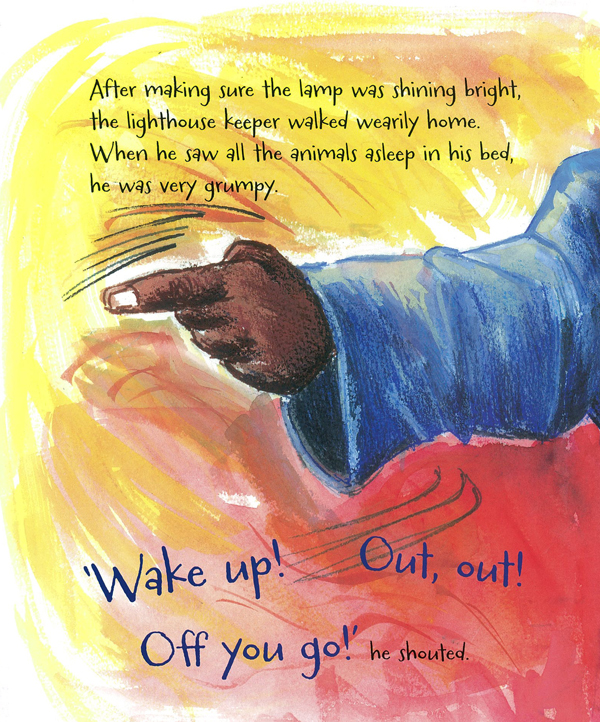 After making sure the lamp was shining bright,
the lighthouse keeper walked wearily home.
When he saw all the animals asleep in his bed,
he was very grumpy.
'Wake up! Out, out!
Off you go!' he shouted.